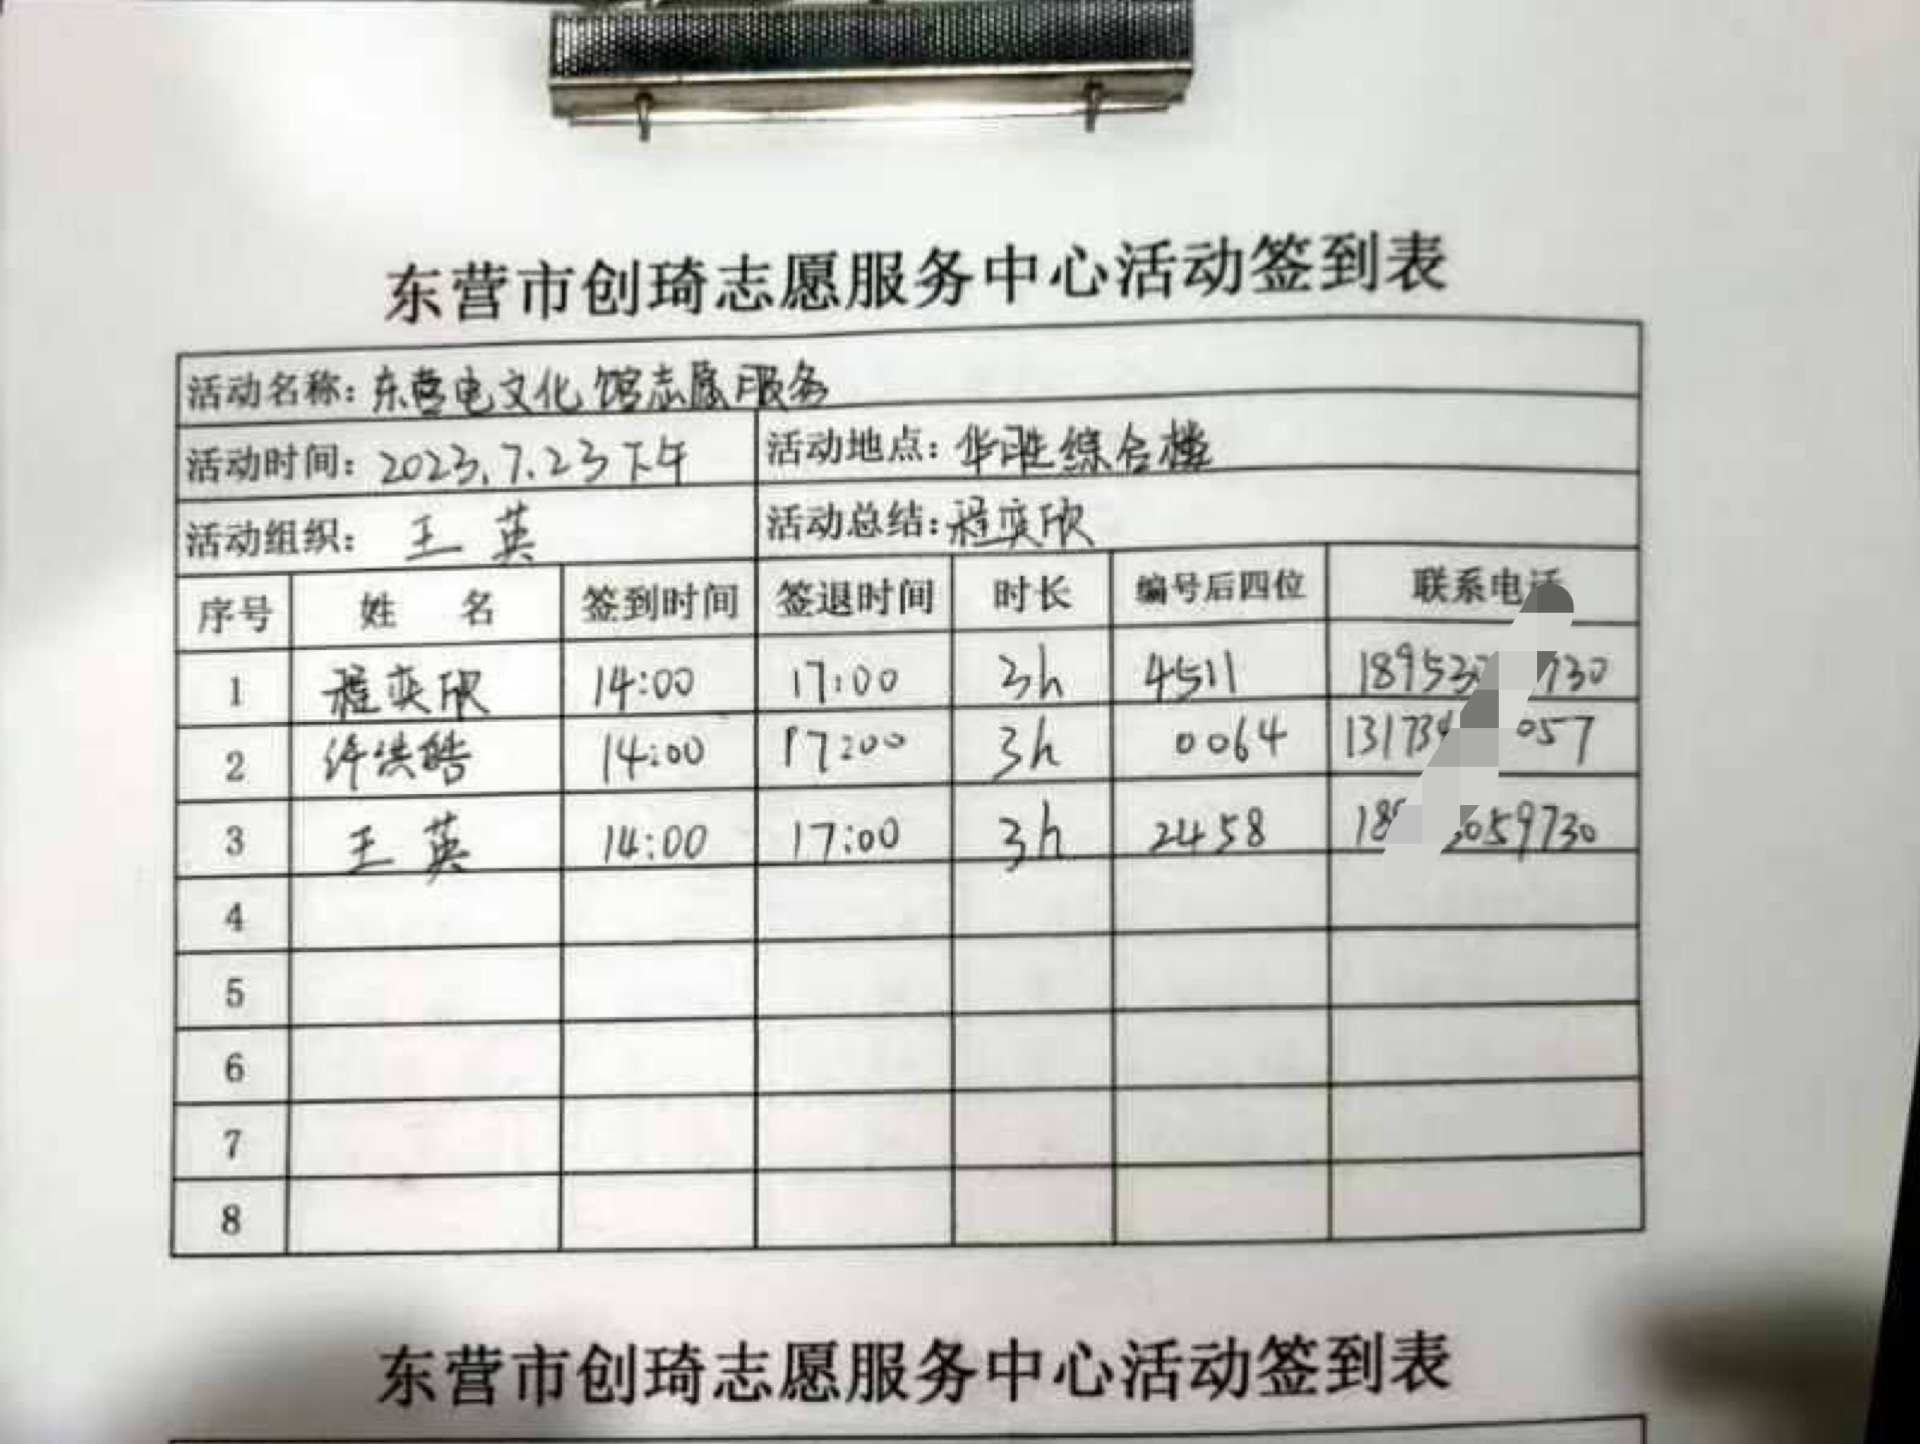 东营市创琦志愿服务中心活动签到表
活动名称：东营电文化馆志愿服务
活动时间：2023.7.23下午 活动地点：华胜综合楼
活动组织：王英 活动总结：程奕欣
序号 姓名 签到时间 签退时间 时长 编号后四位 联系电话
1 程奕欣 14:00 17:00 3h 4511 18953 730
2 许洪皓 14:00 17:00 3h 0064 13173 057
3 王英 14:00 17:00 3h 2458 18 059730
4
5
6
7
8
东营市创琦志愿服务中心活动签到表